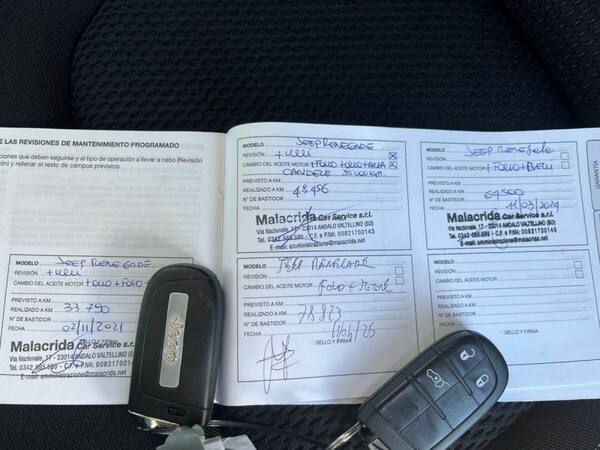 E LAS REVISIONES DE MANTENIMIENTO PROGRAMADO
ciones que deben seguirse y el tipo de operación a llevar a cabo (Revisión
) y rellenar el resto de campos previstos.
MODELO JEEP RENEGADE.
REVISIÓN
CAMBIO DEL ACEITE MOTOR
PREVISTO A KM
REALIZADO A KM 33790
N° DE BASTIDOR
FECHA 02/11/2021
SELLO Y FIRMA
Malacrida Car Service s.r.l.
Via Nazionale, 17 - 23014 ANDALO VALTELLINO (SO)
Tel. 0342.685.589 - C.F. e P.IVA: 00821700143
E-mail: amministrazione@malacrida.net
MODELO JEEP RENEGADE
REVISIÓN
CAMBIO DEL ACEITE MOTOR
CANDELE
PREVISTO A KM
REALIZADO A KM 48456
N° DE BASTIDOR
Malacrida Car Service s.r.l.
Via Nazionale, 17 - 23014 ANDALO VALTELLINO (SO)
Tel. 0342.685.589 - C.F. e P.IVA: 00821700143
E-mail: amministrazione@malacrida.net
MODELO JEEP RENEGADE
REVISIÓN
CAMBIO DEL ACEITE MOTOR
PREVISTO A KM
REALIZADO A KM 64500
N° DE BASTIDOR 11/03/2024
FECHA
Malacrida Car Service s.r.l.
Via Nazionale, 17 - 23014 ANDALO VALTELLINO (SO)
Tel. 0342.685.589 - C.F. e P.IVA: 00821700143
E-mail: amministrazione@malacrida.net
MODELO JEEP RENEGADE
REVISIÓN
CAMBIO DEL ACEITE MOTOR
PREVISTO A KM
REALIZADO A KM 78823
N° DE BASTIDOR
FECHA
SELLO Y FIRMA
MODELO
REVISIÓN
CAMBIO DEL ACEITE MOTOR
PREVISTO A KM
REALIZADO A KM
N° DE BASTIDOR
FECHA
SELLO Y FIRMA
GARANTÍA
Jeep